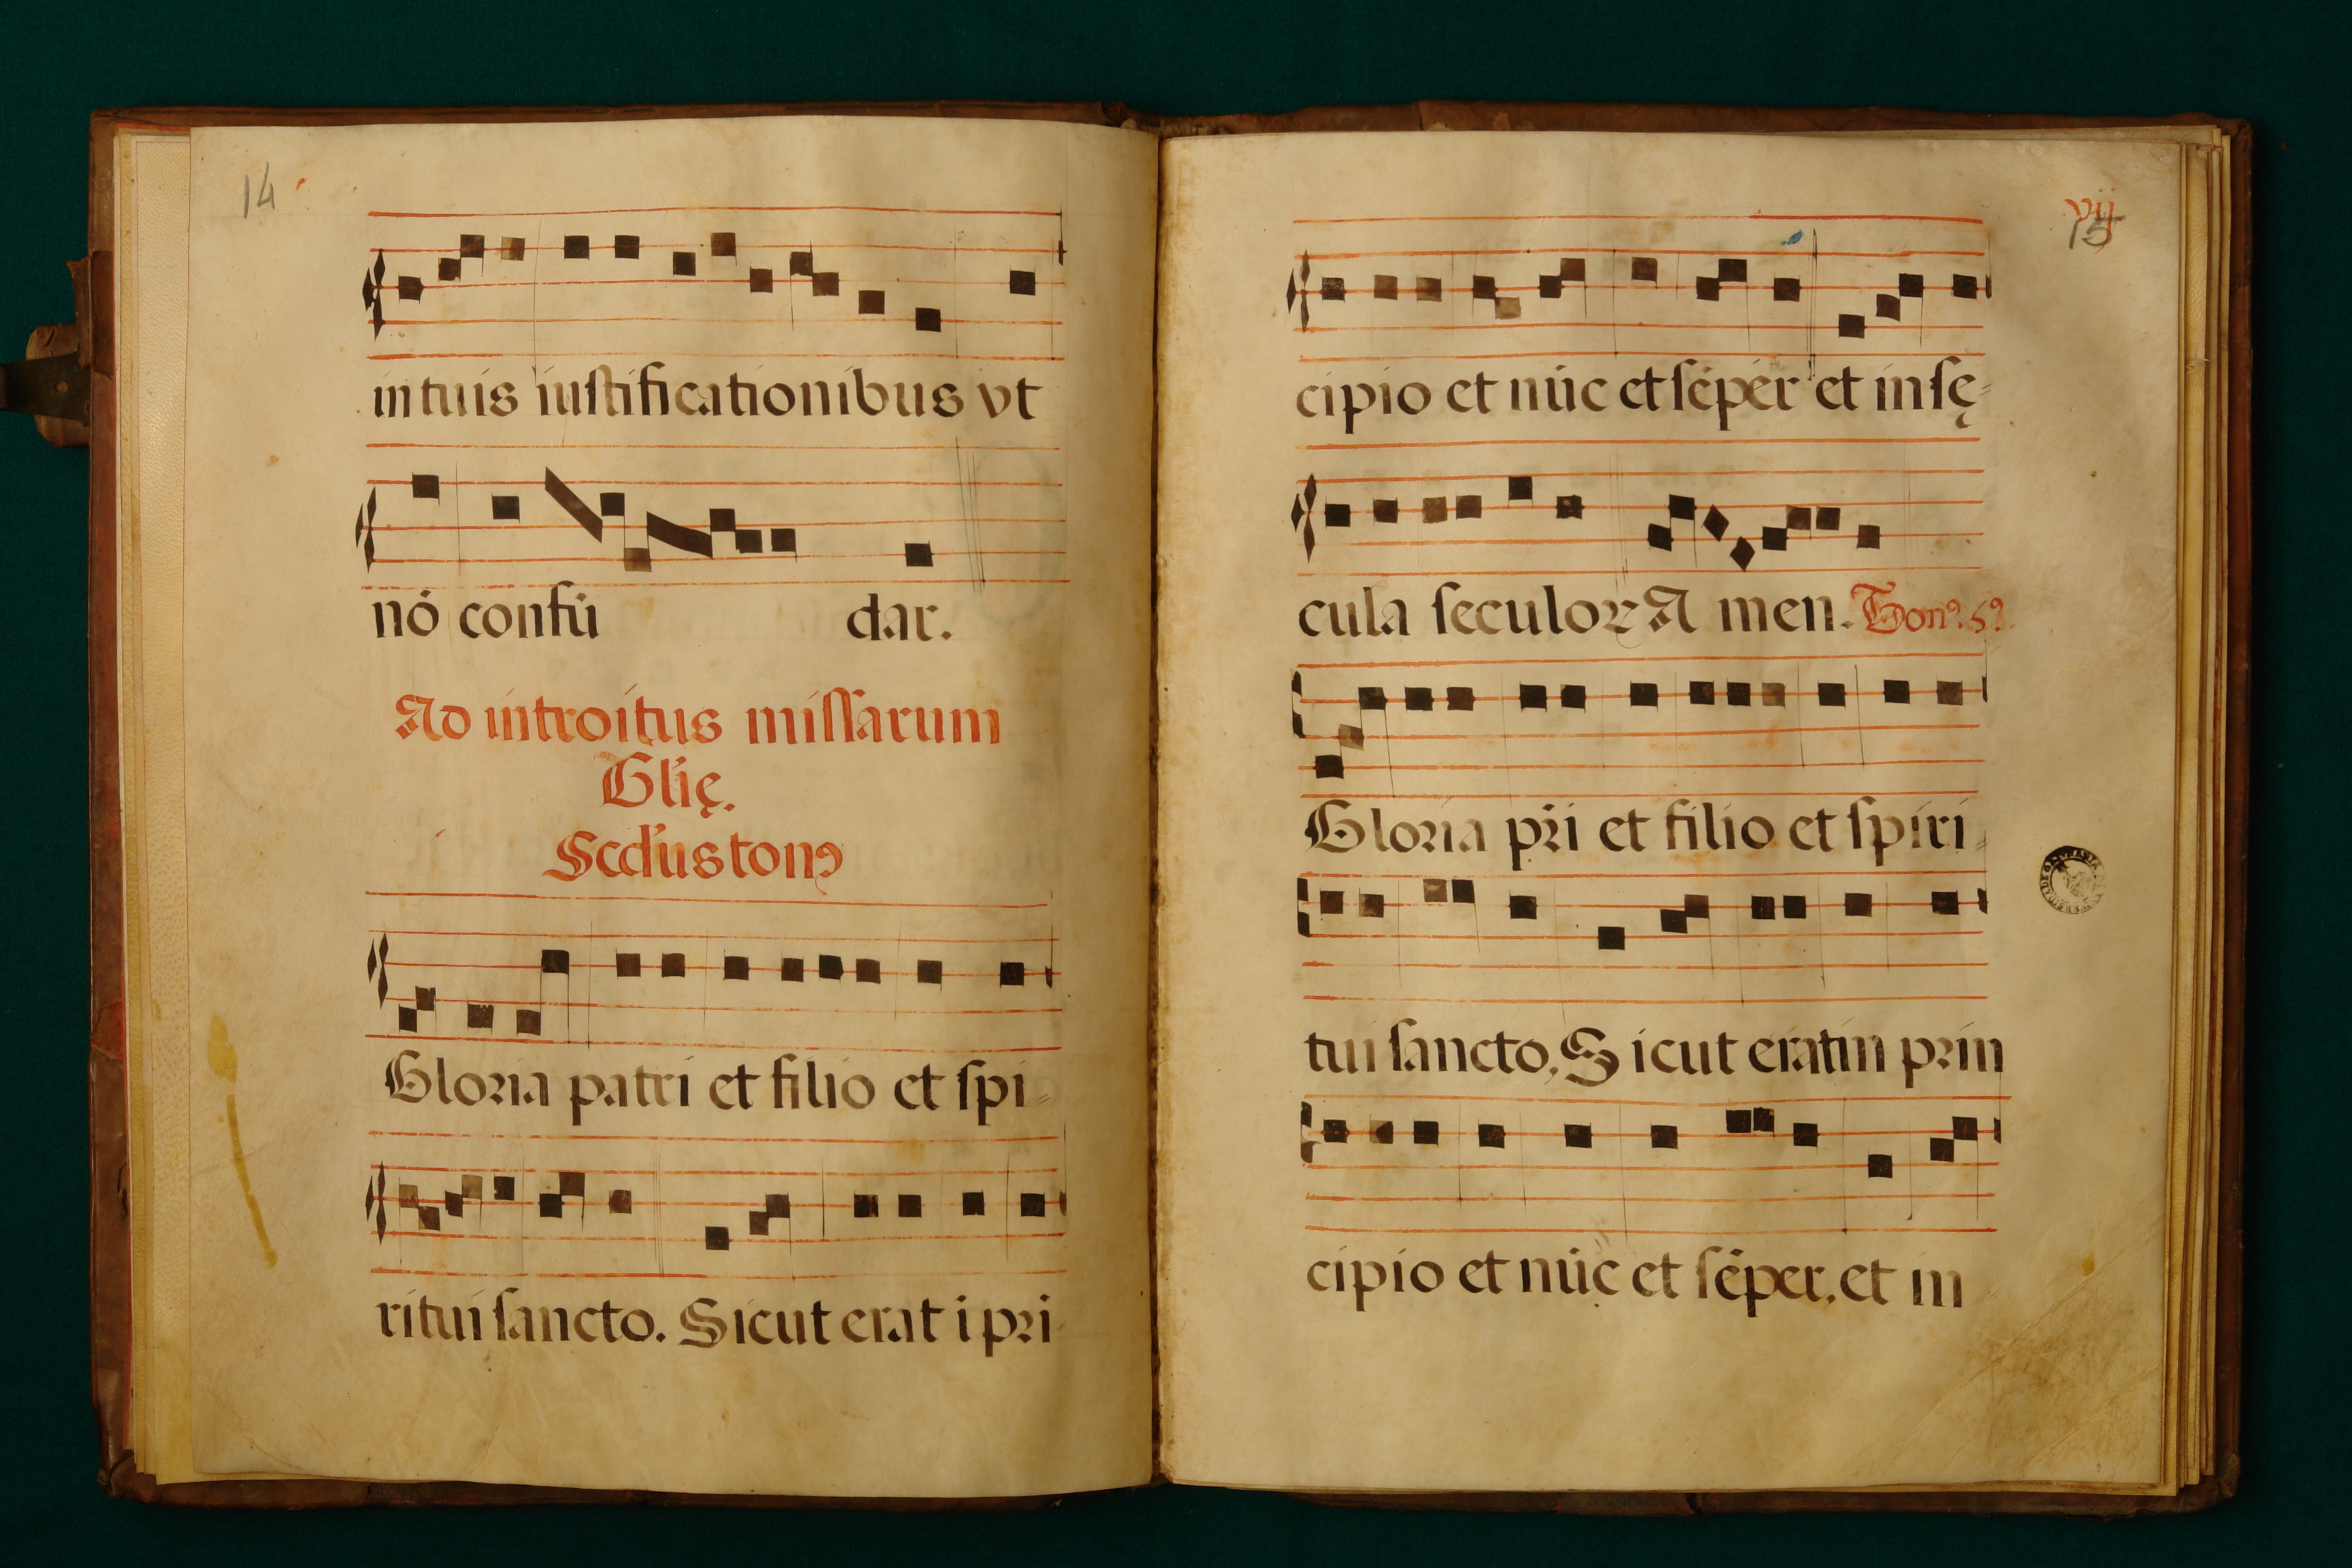 14
in tuis iustificationibus vt
nó confū dar.
Ad introitus missarum
Glię.
Scđus tonꝰ
Gloria patri et filio et spi
ritui sancto. Sicut erat i pri
vij
15
cipio et nūc et sēper et in sę
cula seculoꝝ A men. Tonꝰ. 5ꝰ.
Gloria pr̄i et filio et spiri
tui sancto. S icut erat in prin
cipio et nūc et sēper, et in